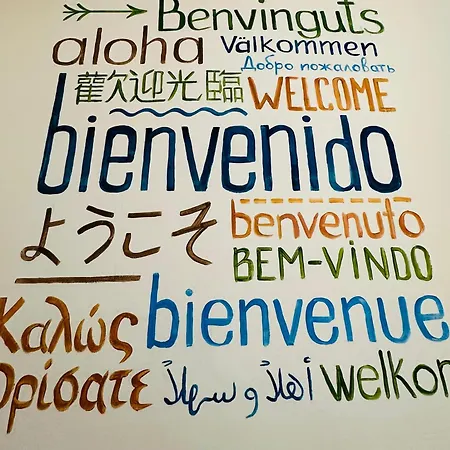 Benvinguts
aloha Välkommen
Добро пожаловать
歡迎光臨 WELCOME
bienvenido
ようこそ benvenuto
BEM-VINDO
Καλώς bienvenue
Ορίσατε أهلاً و سهلاً welkom